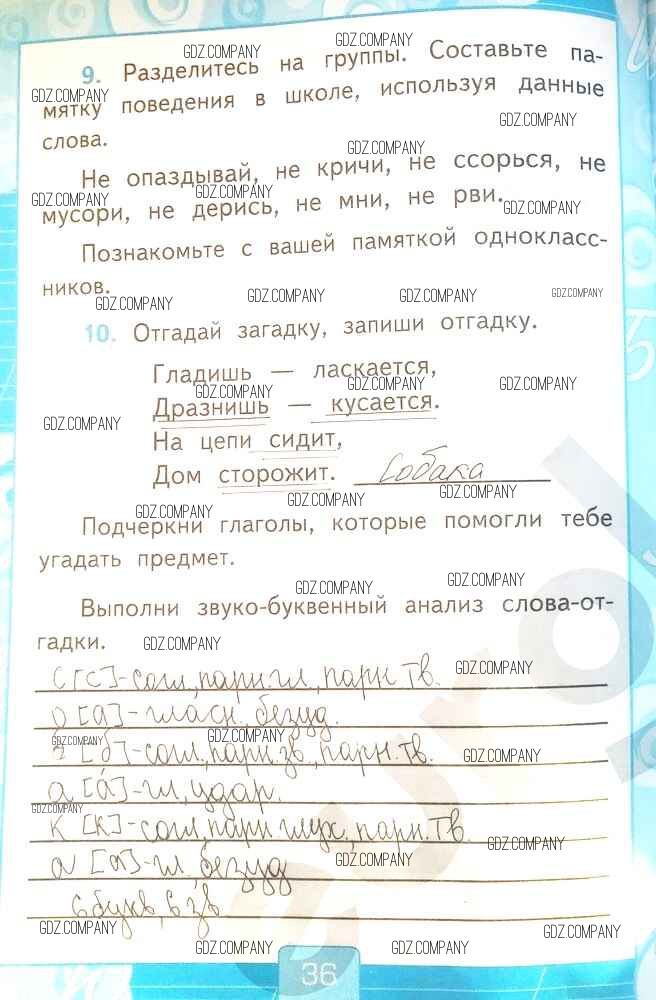 GDZ.COMPANY GDZ.COMPANY
9. Разделитесь на группы. Составьте па-
GDZ.COMPANY
мятку поведения в школе, используя данные
GDZ.COMPANY
слова.
GDZ.COMPANY
Не опаздывай, не кричи, не ссорься, не
GDZ.COMPANY GDZ.COMPANY GDZ.COMPANY
мусори, не дерись, не мни, не рви.
Познакомьте с вашей памяткой однокласс-
ников.
GDZ.COMPANY GDZ.COMPANY GDZ.COMPANY GDZ.COMPANY
10. Отгадай загадку, запиши отгадку.
Гладишь — ласкается,
GDZ.COMPANY GDZ.COMPANY GDZ.COMPANY
Дразнишь — кусается.
GDZ.COMPANY
На цепи сидит,
Дом сторожит. Собака
GDZ.COMPANY GDZ.COMPANY GDZ.COMPANY
Подчеркни глаголы, которые помогли тебе
угадать предмет.
GDZ.COMPANY GDZ.COMPANY
Выполни звуко-буквенный анализ слова-от-
гадки. GDZ.COMPANY
с [с]-согл, парн.гл, парн.тв. GDZ.COMPANY
о [а]-гласн. безуд.
GDZ.COMPANY GDZ.COMPANY
б [б]-согл, парн.зв, парн.тв. GDZ.COMPANY
а [а́]-гл, удар.
GDZ.COMPANY
к [к]-согл, парн.глух, парн.тв.
GDZ.COMPANY
а [а]-гл, безуд GDZ.COMPANY
6 букв, 6 зв
GDZ.COMPANY GDZ.COMPANY GDZ.COMPANY GDZ.COMPANY
36